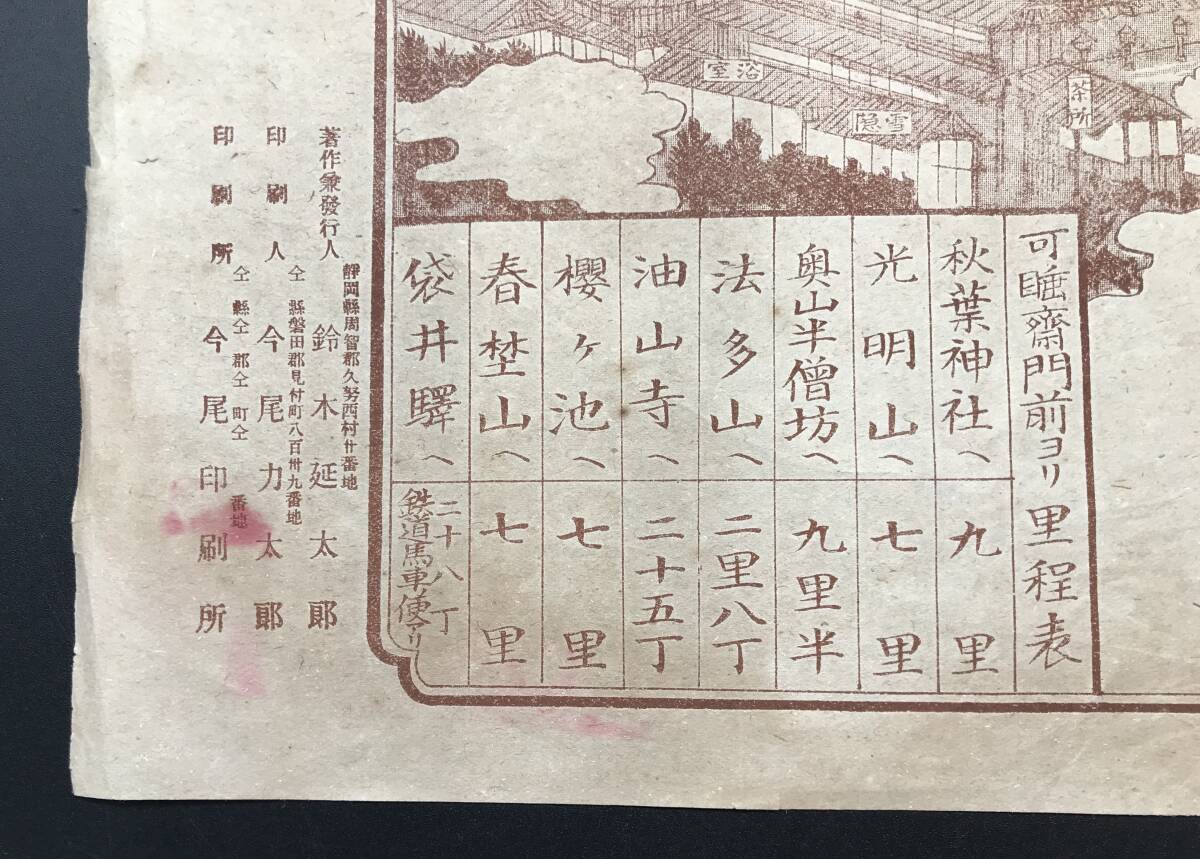 浴室
雪隠
茶所
可睡齋門前ヨリ里程表
秋葉神社へ 九里
光明山へ 七里
奥山半僧坊へ 九里半
法多山へ 二里八丁
油山寺へ 二十五丁
櫻ヶ池へ 七里
春埜山へ 七里
袋井驛へ 二十八丁
鉄道馬車便アリ
著作兼發行人 靜岡縣周智郡久努西村廿番地
鈴木延太郎
印刷人 仝縣磐田郡見付町八百卅九番地
今尾力太郎
印刷所 仝縣仝郡仝町仝番地
今尾印刷所